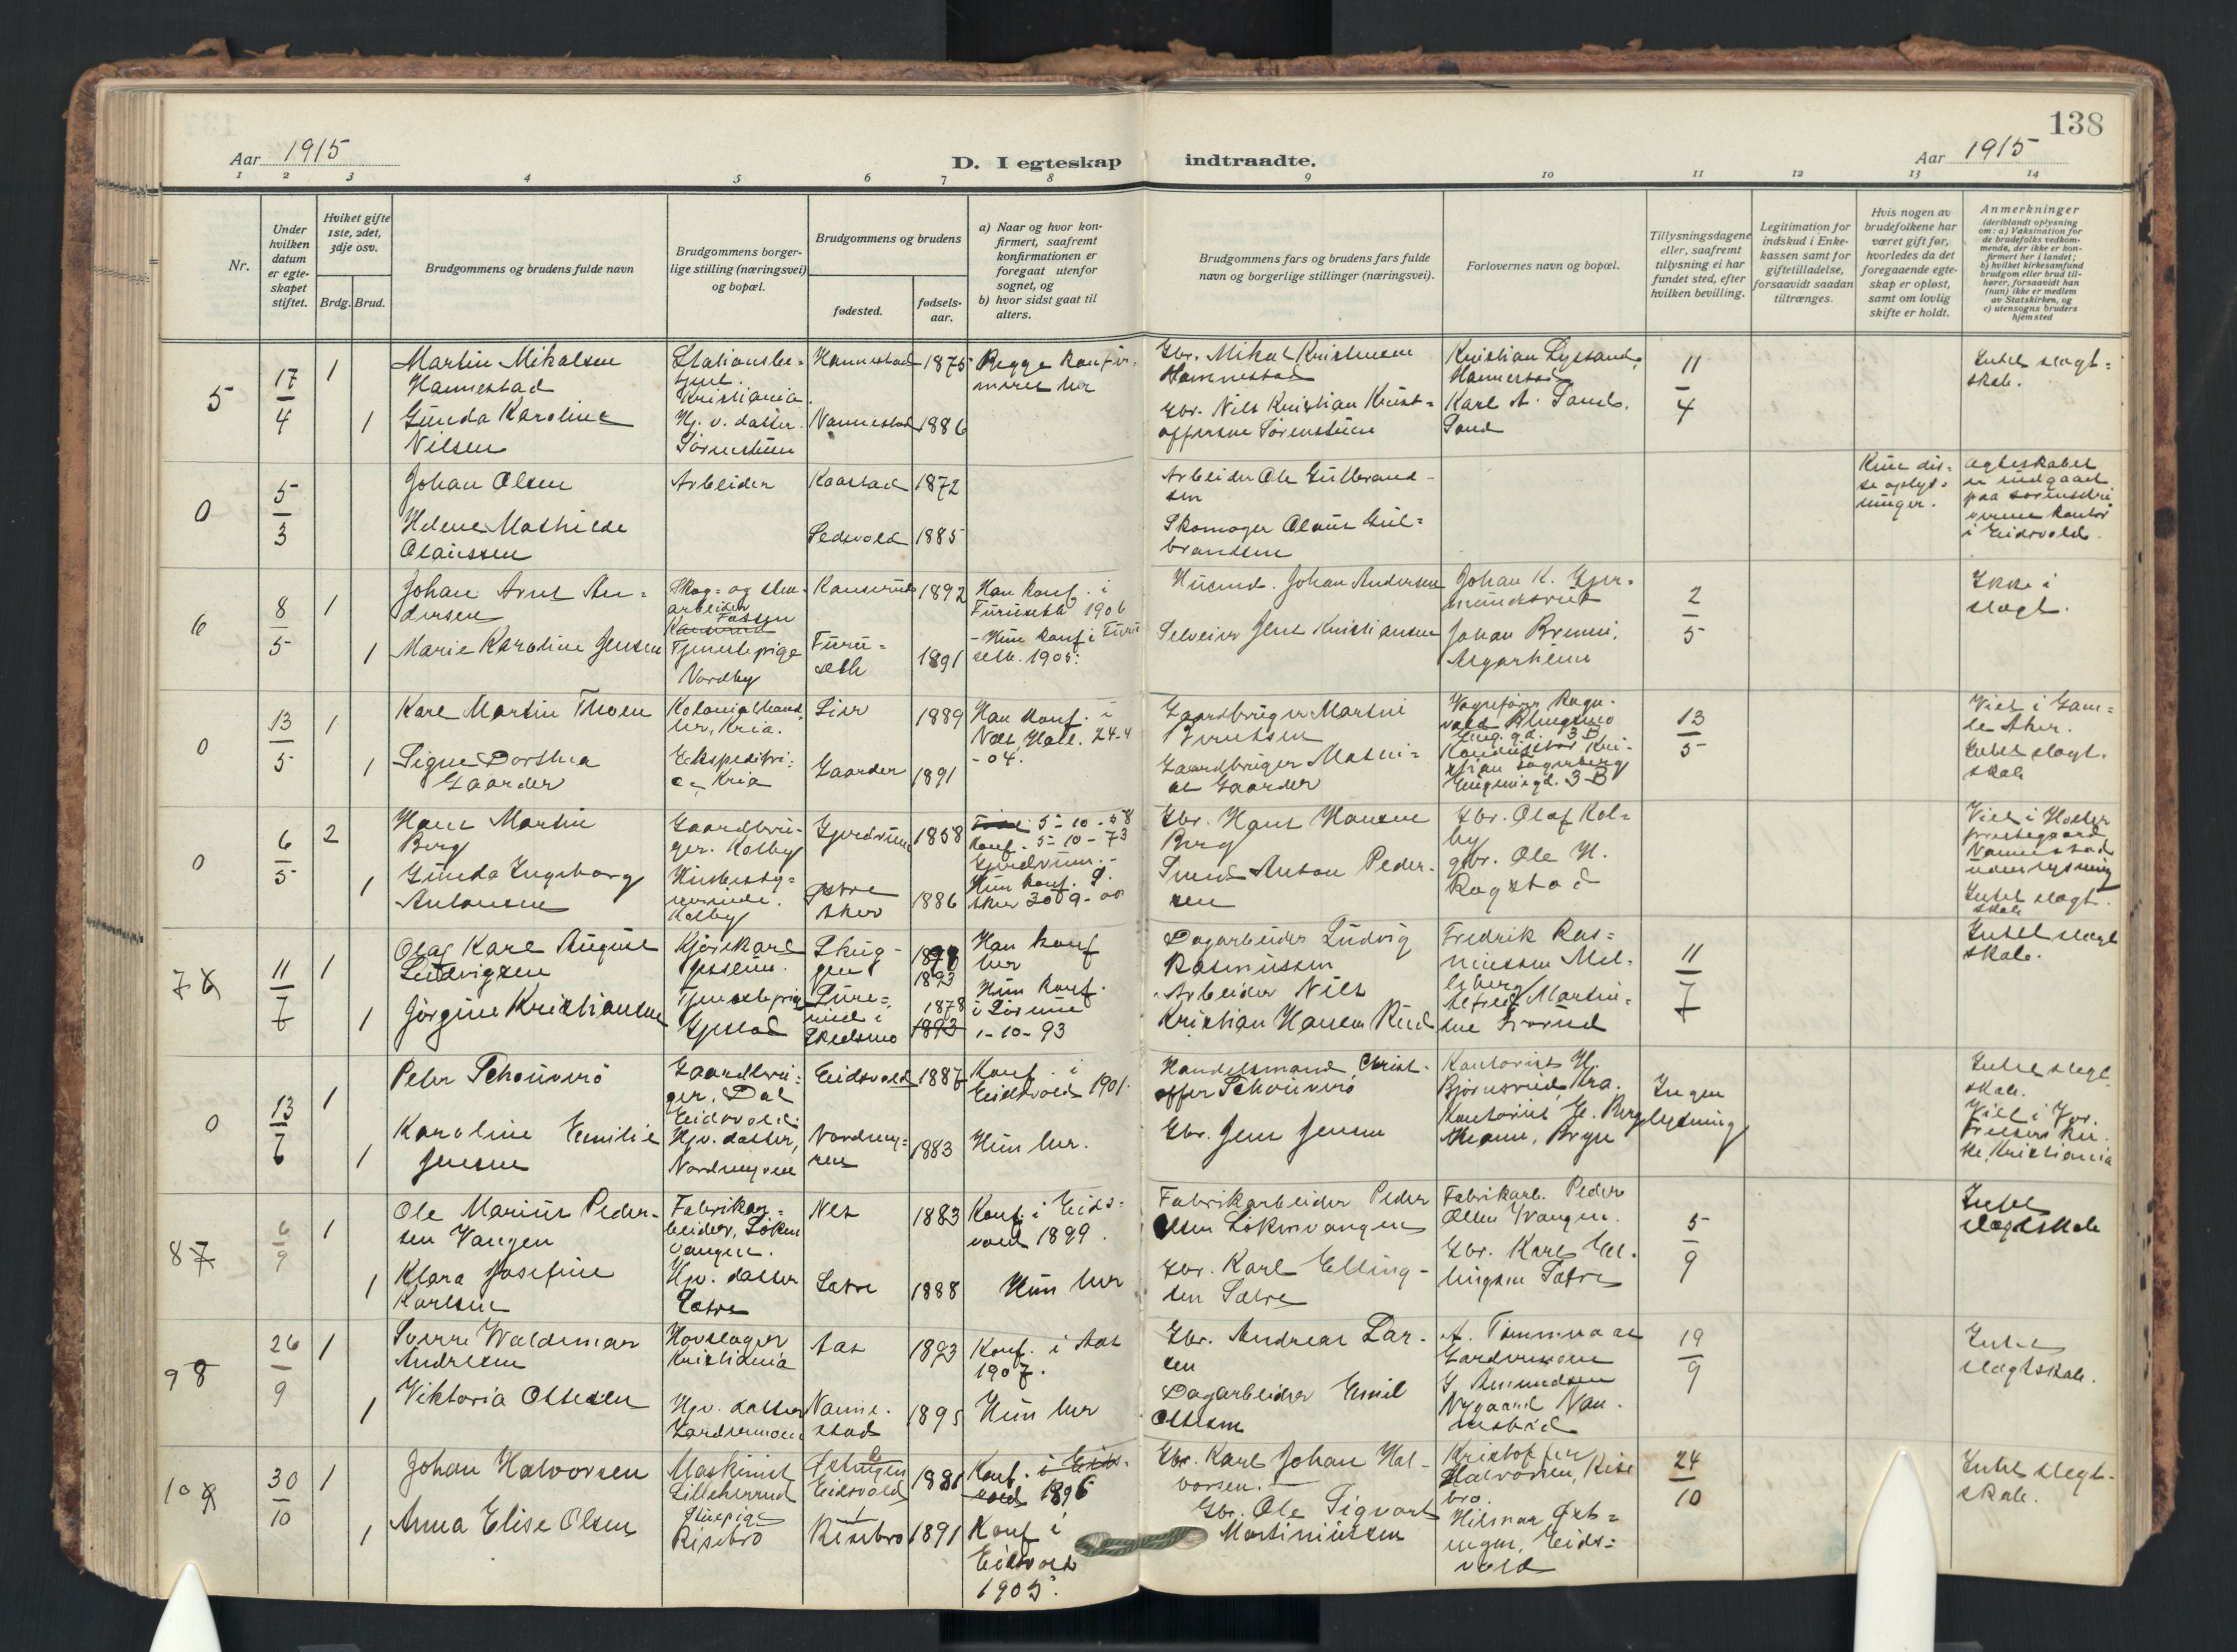 138
Aar 1915
D. I egteskap indtraadte.
Aar 1915
1 2 3 4 5 6 7 8 9 10 11 12 13 14
Nr.
Under
hvilken
datum
er egte-
skapet
stiftet.
Hvilket gifte
1ste, 2det,
3dje osv.
Brdg. Brud.
Brudgommens og brudens fulde navn
Brudgommens borger-
lige stilling (næringsvei)
og bopæl.
Brudgommens og brudens
fødested.
fødsels-
aar.
a) Naar og hvor kon-
firmert, saafremt
konfirmationen er
foregaat utenfor
sognet, og
b) hvor sidst gaat til
alters.
Brudgommens fars og brudens fars fulde
navn og borgerlige stillinger (næringsvei).
Forlovernes navn og bopæl.
Tillysningsdagene
eller, saafremt
tillysning ei har
fundet sted, efter
hvilken bevilling.
Legitimation for
indskud i Enke-
kassen samt for
giftetilladelse,
forsaavidt saadan
tiltrænges.
Hvis nogen av
brudefolkene har
været gift før,
hvorledes da det
foregaaende egte-
skap er opløst,
samt om lovlig
skifte er holdt.
Anmerkninger
(deriblandt oplysning
om: a) Vaksination for
de brudefolks vedkom-
mende, der ikke er kon-
firmert her i landet;
b) hvilket kirkesamfund
brudgom eller brud til-
hører, forsaavidt han
(hun) ikke er medlem
av Statskirken, og
c) utensogns bruders
hjemsted
5
17
4
1
Martin Mikalsen
Hannestad
Stationsbe=
tjent.
Kristiania.
Hannestad
1875
Begge konfir-
meret her
Gbr. Mikal Kristensen
Hannestad
Kristian
Hannestad
11
4
Intet slegt=
skab.
1
Gunda Karoline
Nilsen
Hj. v. datter.
Nannestad
1886
Gbr. Nils Kristian Krist=
offersen
Karl A. Sand.
Sand
0
5
3
Johan Olsen
Arbeider
Kaarstad
1872
Arbeider Ole Gulbrand-
sen
Kun dis=
se oplys=
ninger.
egteskabet
er indgaaet
paa sorenskri
verens kontor
i Eidsvold.
Helene Mathilde
Olaussen
1885
Skomager Olaus Gul=
brandsen
6
8
5
1
Johan Arnt An=
dersen
Skog= og
arbeider
1892
Han konf. i
Furuseth 1906
Husmd. Johan Andersen
Johan K.
2
5
Ikke i
slegt.
1
Marie Karoline Jensen
Tjenestepige
Nordby
Furu=
seth
1891
- Hun konf i Furu
seth. 1905.
Selveier Jens Kristiansen
Johan
Algarheim
0
13
5
1
Karl Martin Thoen
Kolonialhand
ler, Kria.
Lier
1889
Han konf. i
24-4
- 04.
Gaardbruger Martin
Berntsen
Vognfører Ragn-
vald
3 B
13
5
Viet i Gam=
le Aker.
Intet slegt.
skab
1
Signe Dorthea
Gaarder
Ekspeditri=
ce, Kria
Gaarder
1891
Gaardbruger
Gaarder
3 B
0
6
5
2
Hans Martin
Berg
Gaardbru-
ger. Kolby
Gjerdrum
1858
5-10-58
Konf. 5-10-73
Gjerdrum.-
Gbr. Hans Hansen
Berg
Gbr. Olaf Kol=
by
Viet i Holter
prestegaard
Nannestad
uden lysning
Intet slegt.
skab
1
Gunda Ingeborg
Antonsen
Husbesty=
rerinde.
Kolby
Østre
Aker
1886
Hun konf. Ø.
Aker 30 9 - 00
Smed Anton Peder-
sen
gbr. Ole H.
Ragstad
7 6
11
7
1
Olaf Karl August
Ludvigsen
1893
Han konf
her
Dagarbeider Ludvig
Rasmussen
Fredrik Ras=
mussen
11
7
Intet slegt
skab.
1
Jørgine Kristiansen
Tjenestepige
i
Skedsmo
1878
1893
Hun konf.
i Sørum
1-10-93
Arbeider Nils
Kristian Hansen Rud
Alfred Martin=
sen
0
13
6
1
Peter
Gaardbru=
ger, Dal
Eidsvold.
Eidsvold
1887
Konf. i
Eidsvold 1901.
Handelsmand Christ-
offer
Kontorist H.
Bjørnsrud, Kra.
Ingen
lysning
Intet slegt
skab.
Viet i Vor
Frelsers kir
ke, Kristiania
1
Karoline Emilie
Jensen
Hjv. datter,
Nordmyren
Nordmy=
ren
1883
Hun her.
Gbr. Jens Jensen
Kontorist G. Berg
Bryn
8 7
6
9
1
Ole Marius Peder-
sen Vangen
Fabrikar=
beider, Løken
vangen.
Nes
1883
Konf. i Eids=
vold 1899.
Fabrikarbeider Peder
Olsen Løkenvangen
Fabrikarb. Peder
Olsen Vangen.
5
9
Intet
slegtskab
1
Klara Josefine
Karlsen
Hjv. datter
Sætre
Sætre
1888
Hun her
Gbr. Karl Elling-
sen Sætre
Gbr. Karl El-
lingsen Sætre
9 8
26
9
1
Sverre Waldemar
Andresen
Hovslager
Kristiania
Aas
1893
Konf. i Aas
1907.
Gbr. Andreas Lar-
sen
A.
Gardermoen
19
9
Intet
slegtskab.
1
Viktoria Ottesen
Hjv. datter
Gardermoen
Nanne-
stad
1895
Hun her
Dagarbeider Emil
Ottesen
G Amundsen
Nygaard Nan-
nestad
10 9
30
10
1
Johan Halvorsen
Maskinist
Lilleherrud
Eidsvold
1881
Konf. i Eids-
vold 1896
Gbr. Karl Johan Hal-
vorsen.
Kristoffer
Halvorsen, Rise
bro.
24
10
Intet slegt-
skab.
1
Anna Elise Olsen
Stuepige
Risebro
Risebro
1891
Konf i
Eidsvold
1905.
Gbr. Ole Sigvart
Martiniussen
Hilmar Øst=
ingen, Eids=
vold